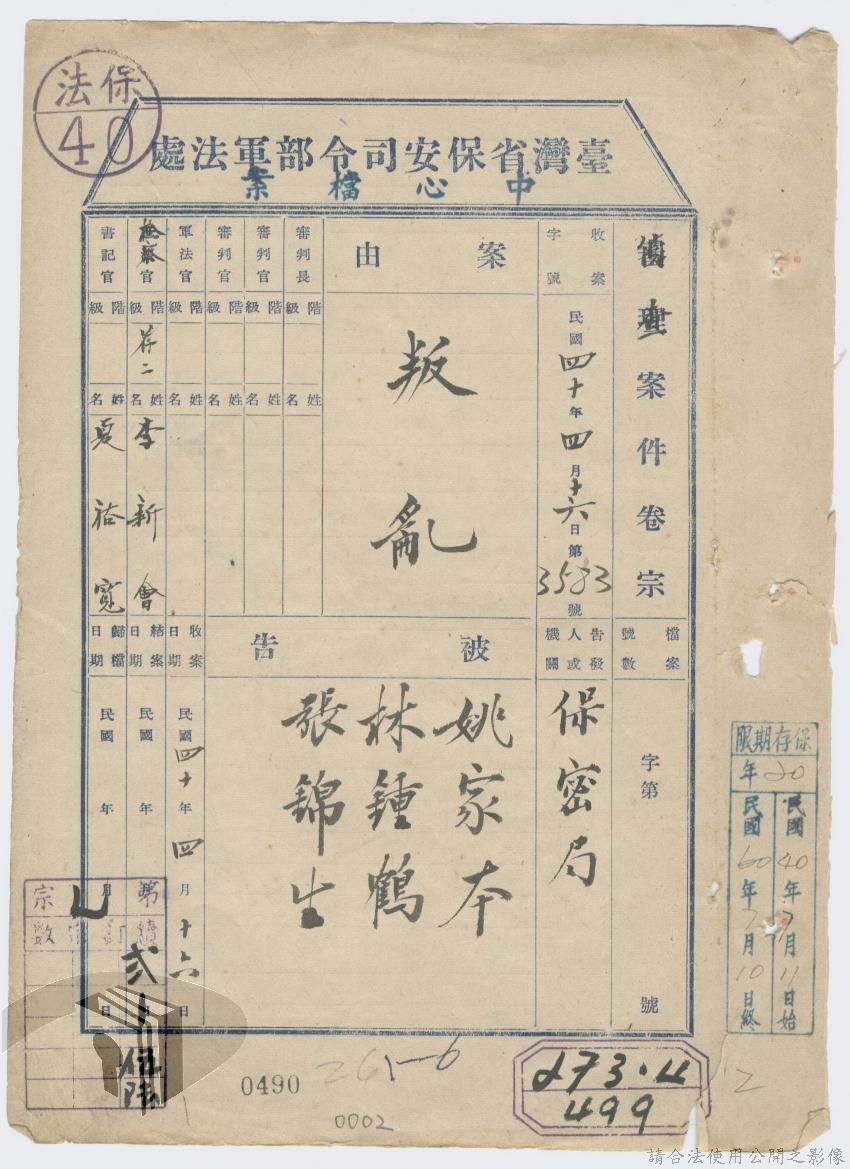 保法
40
臺灣省保安司令部軍法處
中心檔案
理案件卷宗
檔案號數
字第 號
收案字號
民國四十年四月十六日第3583號
告發人或機關
保密局
案由
叛亂
被告
姚家本
林鍾鶴
張錦生
審判長
階級
姓名
審判官
階級
姓名
審判官
階級
姓名
軍法官
階級
姓名
收案日期
民國四十年四月十六日
檢察官
階級
荐二
姓名
李新會
結案日期
民國 年 月 日
書記官
階級
姓名
夏裕寬
歸檔日期
民國 年 月 日
保存期限
20年
民國40年7月11日始
民國60年7月10日終
第 宗
續訂宗數
弍
0490
261-6
0002
273.4
499
12
請合法使用公開之影像